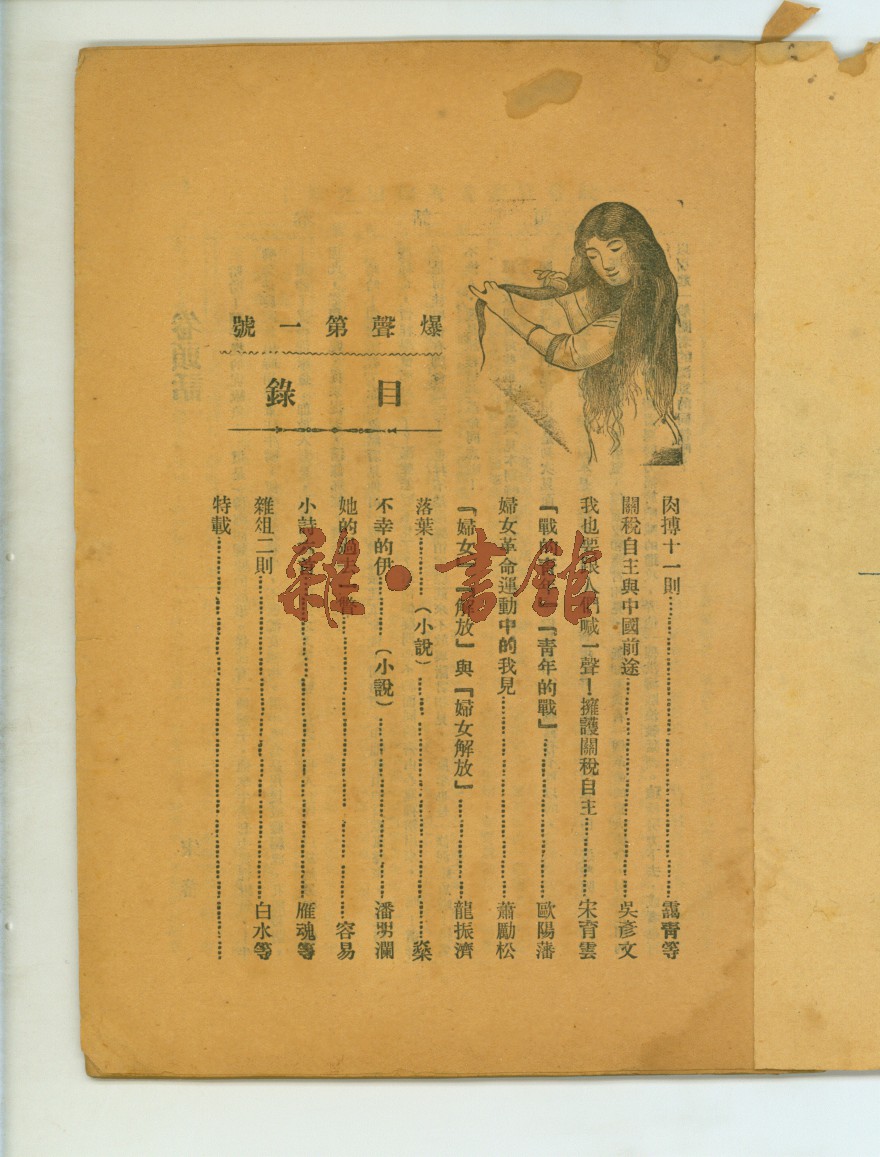 爆聲第一號
目錄
肉搏十一則……靄青等
關稅自主與中國前途……吳彥文
我也要跟人們喊一聲！擁護關稅自主……宋育雲
『戰的青年』『青年的戰』……歐陽藩
婦女革命運動中的我見……蕭勵松
『婦女』『解放』與『婦女解放』……龍振濟
落葉……（小說）……燊
不幸的伊……（小說）……潘明瀾
她的過去一瞥……容易
小詩 首……雁魂等
雜俎二則……白水等
特載……
雜·書館
卷頭話